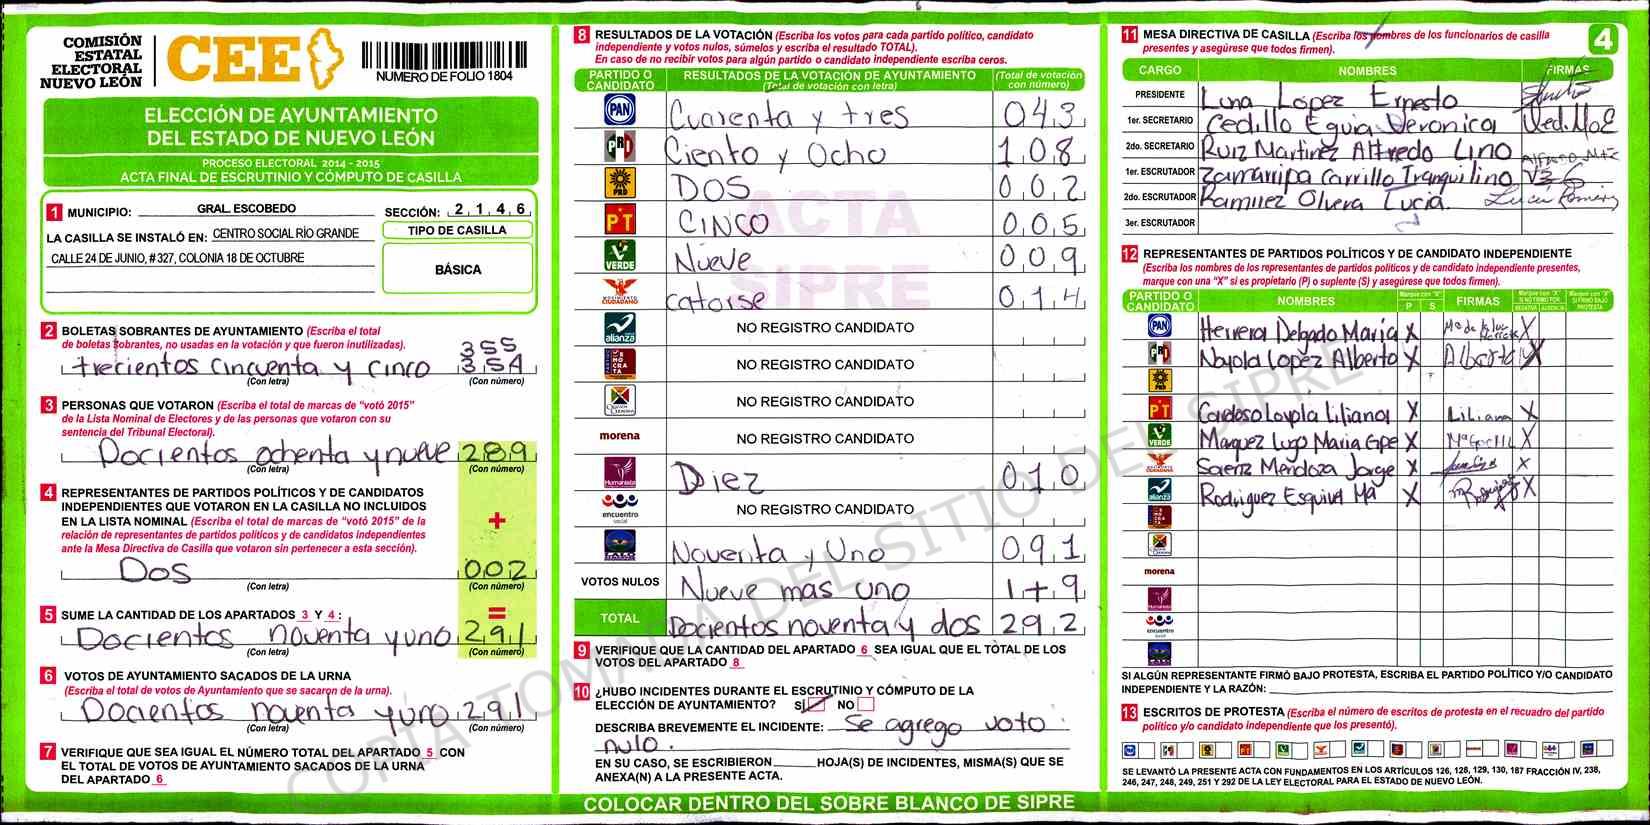 COMISIÓN
ESTATAL
ELECTORAL
NUEVO LEÓN
CEE
NUMERO DE FOLIO 1804
ELECCIÓN DE AYUNTAMIENTO
DEL ESTADO DE NUEVO LEÓN
PROCESO ELECTORAL 2014 - 2015
ACTA FINAL DE ESCRUTINIO Y CÓMPUTO DE CASILLA
1 MUNICIPIO: GRAL. ESCOBEDO SECCIÓN: 2 1 4 6
LA CASILLA SE INSTALÓ EN: CENTRO SOCIAL RÍO GRANDE
CALLE 24 DE JUNIO, # 327, COLONIA 18 DE OCTUBRE
TIPO DE CASILLA
BÁSICA
2 BOLETAS SOBRANTES DE AYUNTAMIENTO (Escriba el total
de boletas sobrantes, no usadas en la votación y que fueron inutilizadas).
355
trecientos cincuenta y cinco 354
(Con letra) (Con número)
3 PERSONAS QUE VOTARON (Escriba el total de marcas de "votó 2015"
de la Lista Nominal de Electores y de las personas que votaron con su
sentencia del Tribunal Electoral).
Docientos ochenta y nueve 289
(Con letra) (Con número)
4 REPRESENTANTES DE PARTIDOS POLÍTICOS Y DE CANDIDATOS
INDEPENDIENTES QUE VOTARON EN LA CASILLA NO INCLUIDOS
EN LA LISTA NOMINAL (Escriba el total de marcas de "votó 2015" de la
relación de representantes de partidos políticos y de candidatos independientes
ante la Mesa Directiva de Casilla que votaron sin pertenecer a esta sección).
+
Dos 002
(Con letra) (Con número)
5 SUME LA CANTIDAD DE LOS APARTADOS 3 Y 4 : =
Docientos noventa y uno 291
(Con letra) (Con número)
6 VOTOS DE AYUNTAMIENTO SACADOS DE LA URNA
(Escriba el total de votos de Ayuntamiento que se sacaron de la urna).
Docientos noventa y uno 291
(Con letra) (Con número)
7 VERIFIQUE QUE SEA IGUAL EL NÚMERO TOTAL DEL APARTADO 5 CON
EL TOTAL DE VOTOS DE AYUNTAMIENTO SACADOS DE LA URNA
DEL APARTADO 6
8 RESULTADOS DE LA VOTACIÓN (Escriba los votos para cada partido político, candidato
independiente y votos nulos, súmelos y escriba el resultado TOTAL).
En caso de no recibir votos para algún partido o candidato independiente escriba ceros.
PARTIDO O CANDIDATO RESULTADOS DE LA VOTACIÓN DE AYUNTAMIENTO (Total de votación con letra) (Total de votación con número)
PAN Cuarenta y tres 043
PRI Ciento y Ocho 108
PRD DOS 002
PT CINCO 005
VERDE Nueve 009
MOVIMIENTO CIUDADANO catorse 014
alianza NO REGISTRO CANDIDATO
DEMOCRATA NO REGISTRO CANDIDATO
NO REGISTRO CANDIDATO
morena NO REGISTRO CANDIDATO
Humanista Diez 010
encuentro social NO REGISTRO CANDIDATO
Noventa y Uno 091
VOTOS NULOS Nueve mas uno 1+9
TOTAL Docientos noventa y dos 292
9 VERIFIQUE QUE LA CANTIDAD DEL APARTADO 6 SEA IGUAL QUE EL TOTAL DE LOS
VOTOS DEL APARTADO 8
10 ¿HUBO INCIDENTES DURANTE EL ESCRUTINIO Y CÓMPUTO DE LA
ELECCIÓN DE AYUNTAMIENTO? SI NO
DESCRIBA BREVEMENTE EL INCIDENTE: Se agrego voto
nulo.
EN SU CASO, SE ESCRIBIERON HOJA(S) DE INCIDENTES, MISMA(S) QUE SE
ANEXA(N) A LA PRESENTE ACTA.
COLOCAR DENTRO DEL SOBRE BLANCO DE SIPRE
ACTA
SIPRE
COPIA TOMADA DEL SITIO DEL SIPRE
11 MESA DIRECTIVA DE CASILLA (Escriba los nombres de los funcionarios de casilla
presentes y asegúrese que todos firmen).
4
CARGO NOMBRES FIRMAS
PRESIDENTE Luna López Ernesto
1er. SECRETARIO Cedillo Eguia Veronica
2do. SECRETARIO Ruiz Martinez Alfredo Lino
1er. ESCRUTADOR Zamarripa Carrillo Tranquilino
2do. ESCRUTADOR Ramirez Olvera Lucia.
3er. ESCRUTADOR
12 REPRESENTANTES DE PARTIDOS POLÍTICOS Y DE CANDIDATO INDEPENDIENTE
(Escriba los nombres de los representantes de partidos políticos y de candidato independiente presentes,
marque con una "X" si es propietario (P) o suplente (S) y asegúrese que todos firmen).
PARTIDO O CANDIDATO NOMBRES Marque con "X" P S FIRMAS Marque con "X" SI NO FIRMÓ POR: NEGATIVA AUSENCIA Marque con "X" SI FIRMÓ BAJO PROTESTA
PAN Herrera Delgado Maria X X
PRI Noyola Lopez Alberto X Alberto X
PRD
PT Cardoso Loyola Liliana X Liliana X
VERDE Marquez Lugo Maria Gpe X X
Saenz Mendoza Jorge X X
alianza Rodriguez Esquivel Ma X X
morena
Humanista
encuentro social
SI ALGÚN REPRESENTANTE FIRMÓ BAJO PROTESTA, ESCRIBA EL PARTIDO POLÍTICO Y/O CANDIDATO
INDEPENDIENTE Y LA RAZÓN:
13 ESCRITOS DE PROTESTA (Escriba el número de escritos de protesta en el recuadro del partido
político y/o candidato independiente que los presentó).
SE LEVANTÓ LA PRESENTE ACTA CON FUNDAMENTOS EN LOS ARTÍCULOS 126, 128, 129, 130, 187 FRACCIÓN IV, 238,
246, 247, 248, 249, 251 Y 292 DE LA LEY ELECTORAL PARA EL ESTADO DE NUEVO LEÓN.